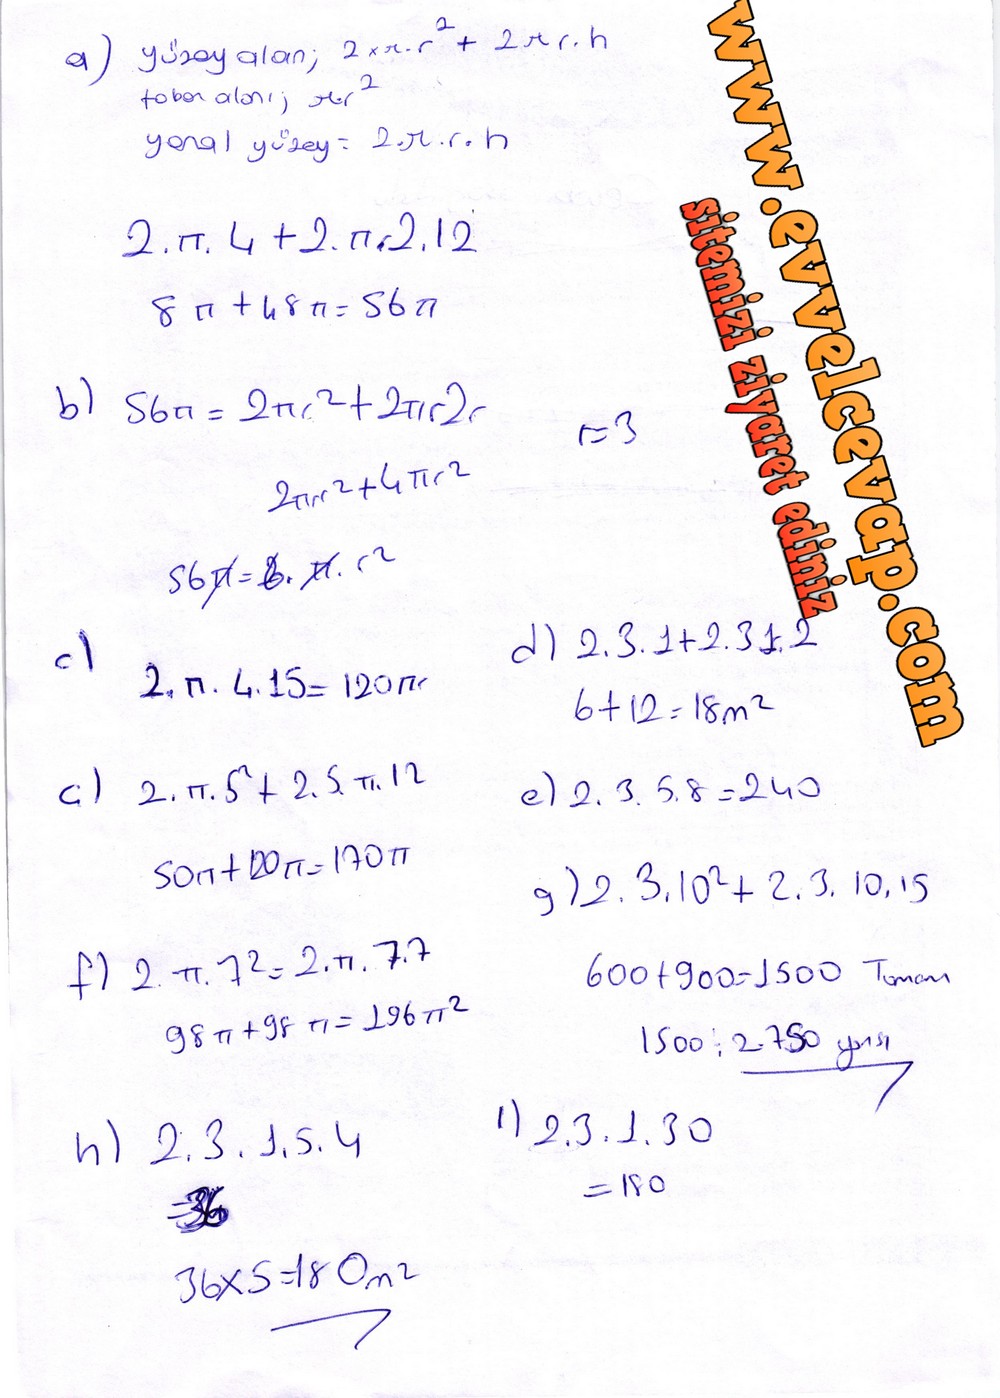 a) yüzey alan; 2×π.r² + 2πr.h
taban alanı; πr²
yanal yüzey = 2.π.r.h
2.π.4+2.π.2.12
8π+48π=56π
b) 56π = 2πr²+2πr2r
r=3
2πr²+4πr²
56π=6.π.r²
c) 2.π.4.15=120π
d) 2.3.1+2.3.1.2
6+12=18m²
ç) 2.π.5²+2.5.π.12
50π+120π=170π
e) 2.3.5.8=240
f) 2.π.7²=2.π.7.7
98π+98π=196π²
g) 2.3.10²+2.3.10.15
600+900=1500 Tamam
1500:2=750 yarısı
h) 2.3.1,5.4
=36
36×5=180m²
ı) 2.3.1.30
=180
www.evvelcevap.com
sitemizi ziyaret ediniz